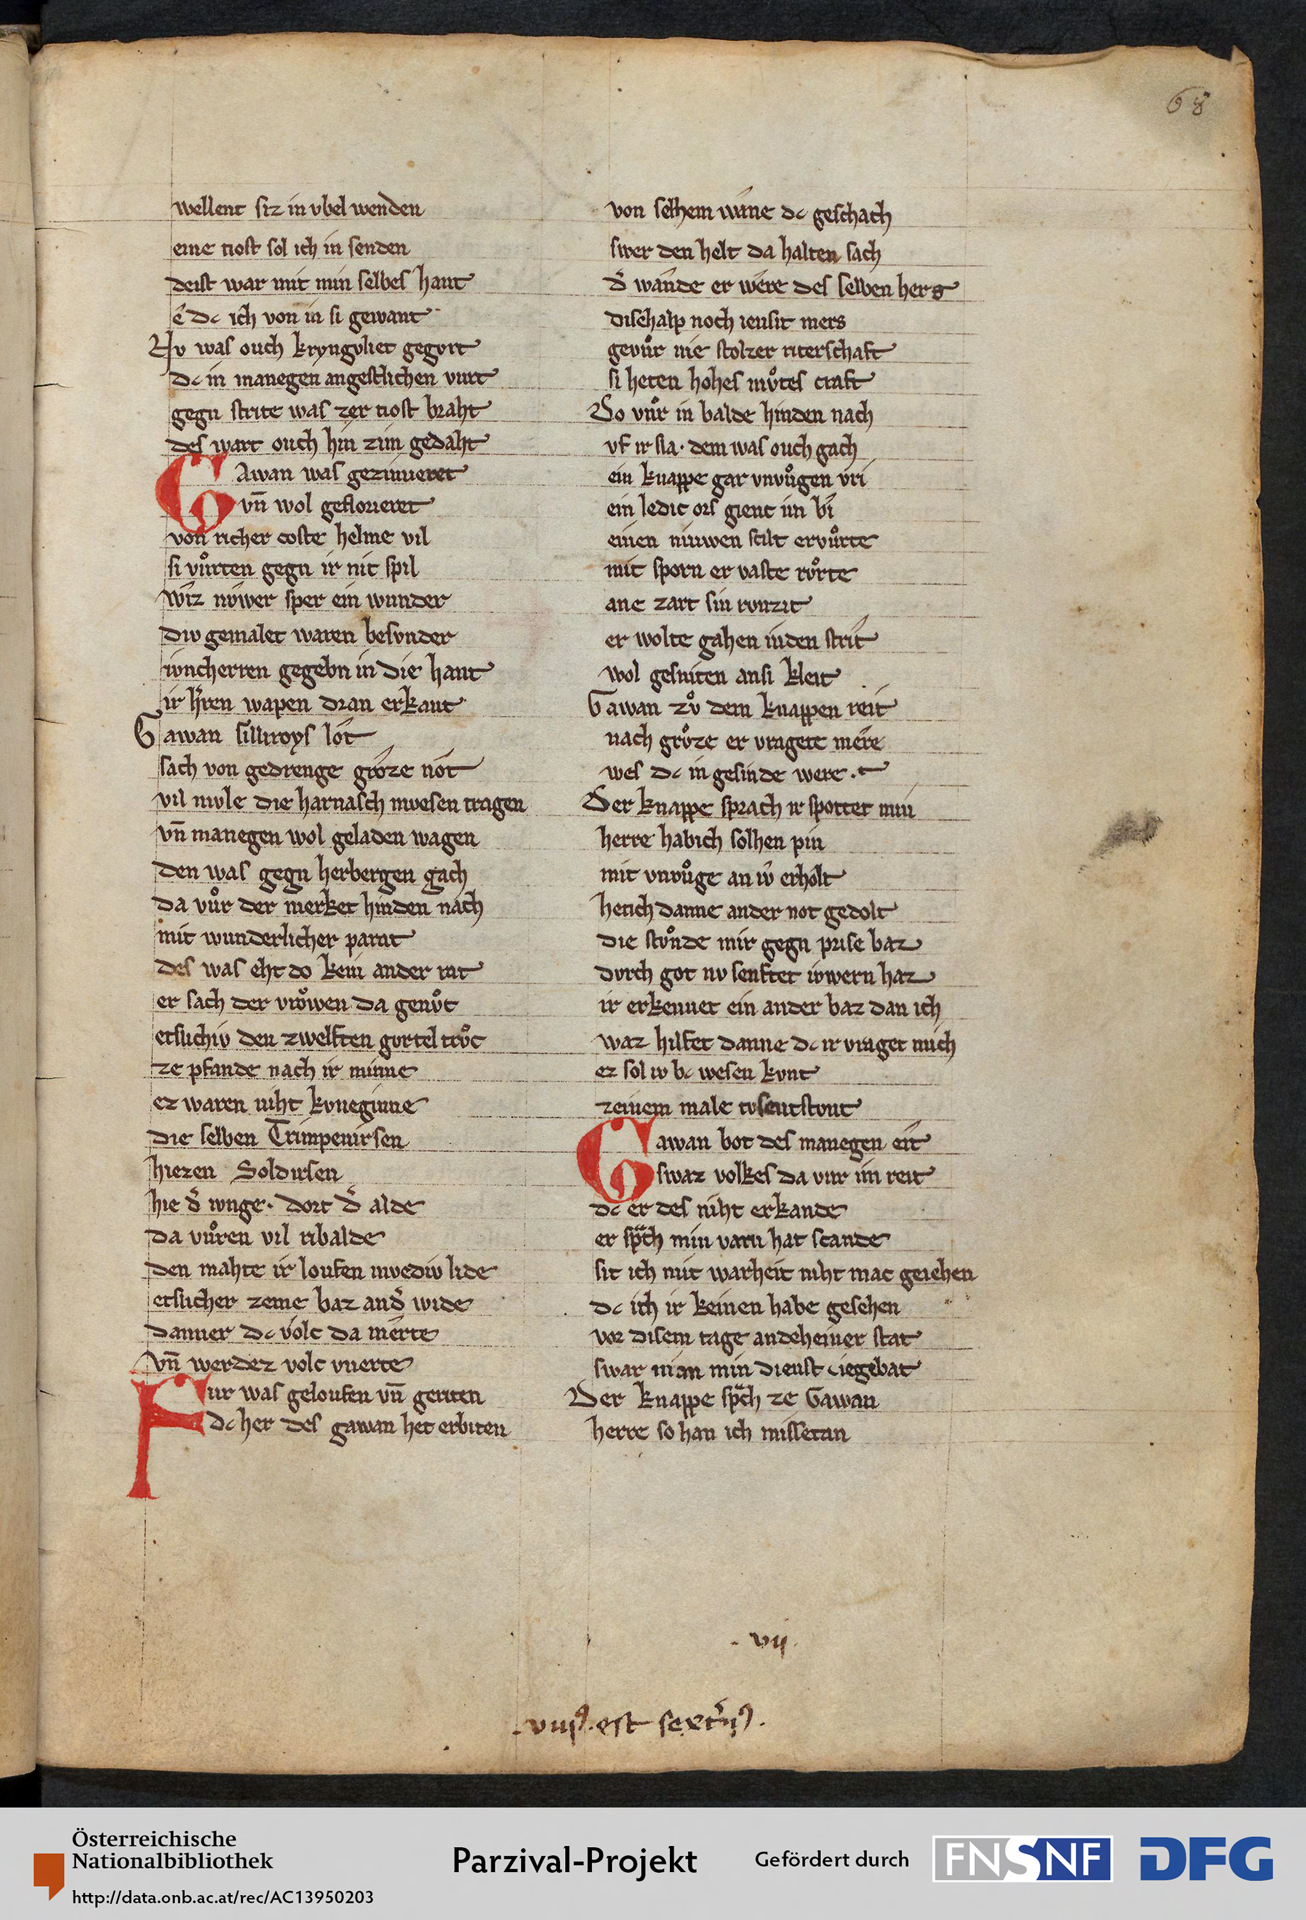 68
wellent siz in vbel wenden
eine tiost sol ich in senden
deist war mit min selbes hant
ê dc ich von in si gewant
Nv was ouch kryngvliet gegvrt
dc in manegen angestlichen vurt
gegn strite was zer tiost braht
des wart ouch hin zim gedaht
Gawan was gezimieret
vn̄ wol geflorieret
von richer coste helme vil
si vůrten gegn ir nit spil
wîz nŵer sper ein wunder
div gemalet waren besvnder
ivncherren gegebn in die hant
ir h̾ren wapen dran erkant
Gawan filliroys lôt
sach von gedrenge grôze nôt
vil mvle die harnasch mvesen tragen
vn̄ manegen wol geladen wagen
den was gegn herbergen gach
da vůr der merket hinden nach
mit wunderlicher parat
des was eht do kein ander rat
er sach der vrǒwen da genv̊c
etslichiv den zwelften gortel trv̊c
ze pfande nach ir minne
ez waren niht kvneginne
die selben Trimpenirsen
hiezen Soldirsen
hie d̾ ivnge. dort d̾ alde
da vůren vil ribalde
den mahte ir loufen mvediv lide
etslicher zeme baz and̾ wide
danner dc volc da mêrte
vn̄ werdez volc vnerte
Fur was geloufen vn̄ geriten
dc her des gawan het erbiten
von selhem wâne dc geschach
swer den helt da halten sach
d̾ wânde er wêre des selben hers
disehalp noch iensit mers
gevůr nie stolzer riterschaft
si heten hohes mv̊tes craft
Do vůr in balde hinden nach
vf ir sla. dem was ouch gach
ein knappe gar vnvůgen vri
ein ledic ors gienc im bî
einen niuwen scilt ervůrte
mit sporn er vaste rv̊rte
ane zart sin runzit
er wolte gahen inden strît
wol gesniten ansi kleit
Gawan zv̊ dem knappen reit
nach grv̊ze er vragete mêre
wes dc ingesinde were.
Der knappe sprach ir spottet min
herre habich solhen pin
mit vnvůge an iv̾ erholt
hetich danne ander not gedolt
die stv̊nde mir gegn prise baz
dvrch got nv senftet iwern haz
ir erkennet ein ander baz dan ich
waz hilfet danne dc ir vraget mich
ez sol iv bc wesen kvnt
zeinem male tvsentstvnt
Gawan bot des manegen eit
swaz volkes da vur im reit
dc er des niht erkande
er sp̾ch min varn hat scande
sit ich mit warheit niht mac geiehen
dc ich ir keinen habe gesehen
vor disem tage andeheiner stat
swar man min dienst iegebat
Der knappe sp̾ch ze Gawan
herre so han ich missetan
. vii.
Österreichische
Nationalbibliothek
http://data.onb.ac.at/rec/AC13950203
Parzival-Projekt
Gefördert durch
FNSNF
DFG